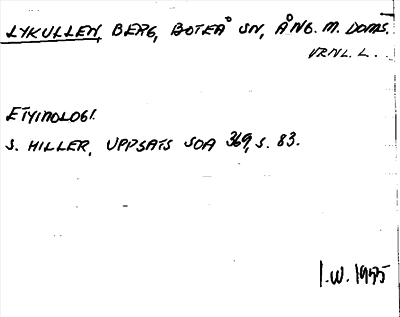 LYKULLEN, BERG, BOTEÅ SN, ÅNG. M. DOMS.
VRNL. L.
ETYMOLOGI.
S. HILLER, UPPSATS SOA 369, S. 83.
I.W. 1955